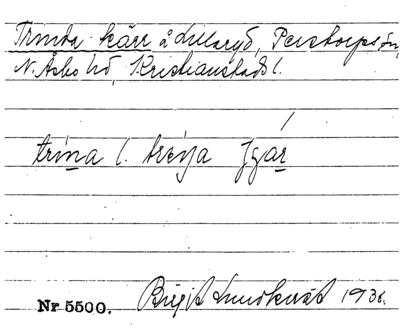 Trinda kärr å Lillaryd, Perstorps sn,
N. Åsbo hd, Kristianstads l.
trina l. treija
Nr 5500. Birgit Lundkvist 1936.